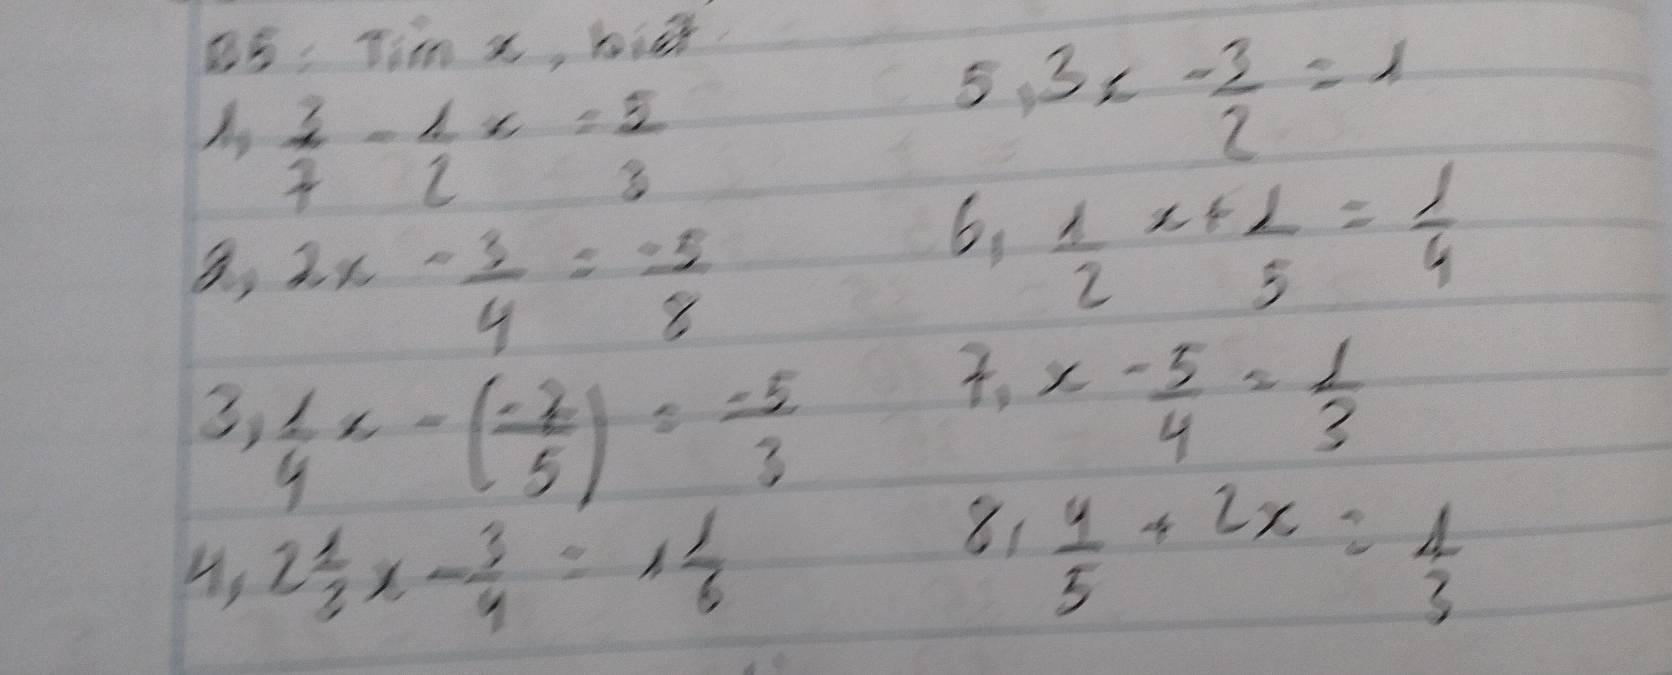 B5: Tìm x, biết
1, 3/7 - 1/2 x = 5/3
2, 2x - 3/4 = -5/8
3, 1/4 x - (-2/5) = -5/3
4, 2 1/3 x - 3/4 = 1 1/6
5, 3x - 3/2 = 1
6, 1/2 x + 1/5 = 1/4
7, x - 5/4 = 1/3
8, 4/5 + 2x = 1/3